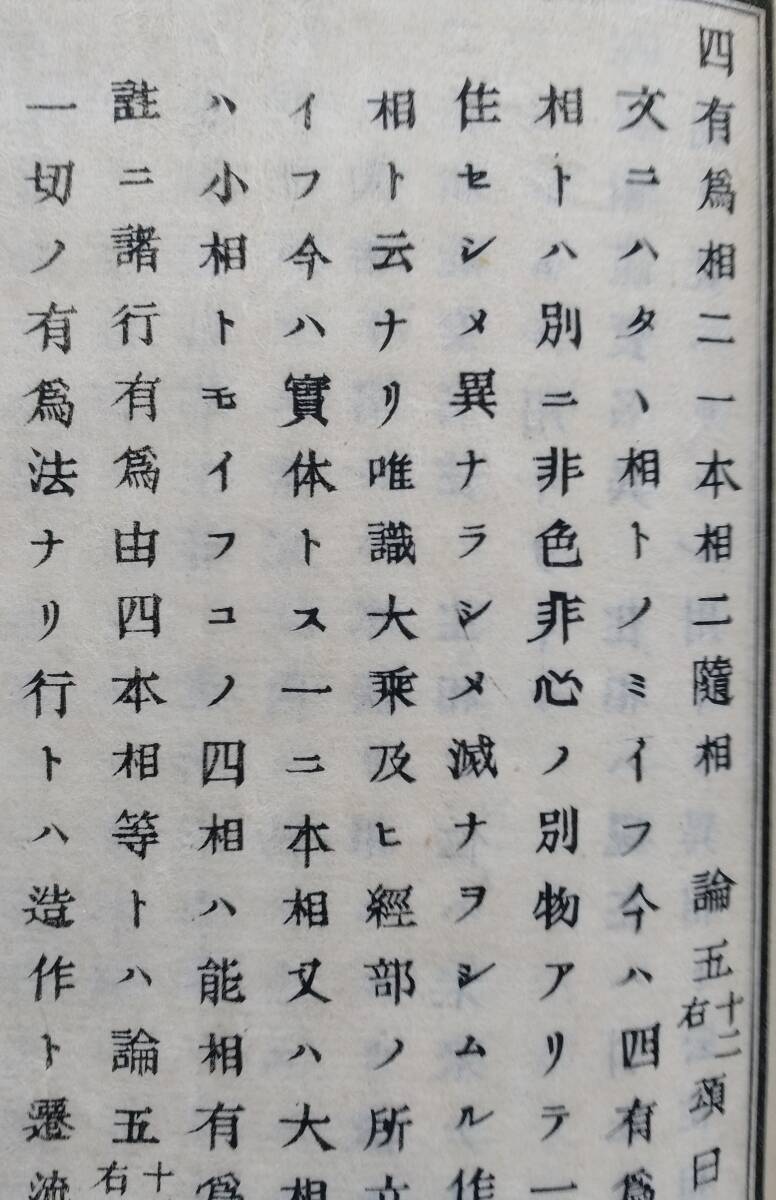 四有爲相二一本相二隨相　論五十二右頌曰
文ニハタヽ相トノミイフ今ハ四有爲
相トハ別ニ非色非心ノ別物アリテ一
住セシメ異ナラシメ滅ナヲシムル作
相ト云ナリ唯識大乘及ヒ經部ノ所立
イフ今ハ實体トス一ニ本相又ハ大相
ハ小相トモイフコノ四相ハ能相有爲
註ニ諸行有爲由四本相等トハ論五十右
一切ノ有爲法ナリ行トハ造作ト遷流